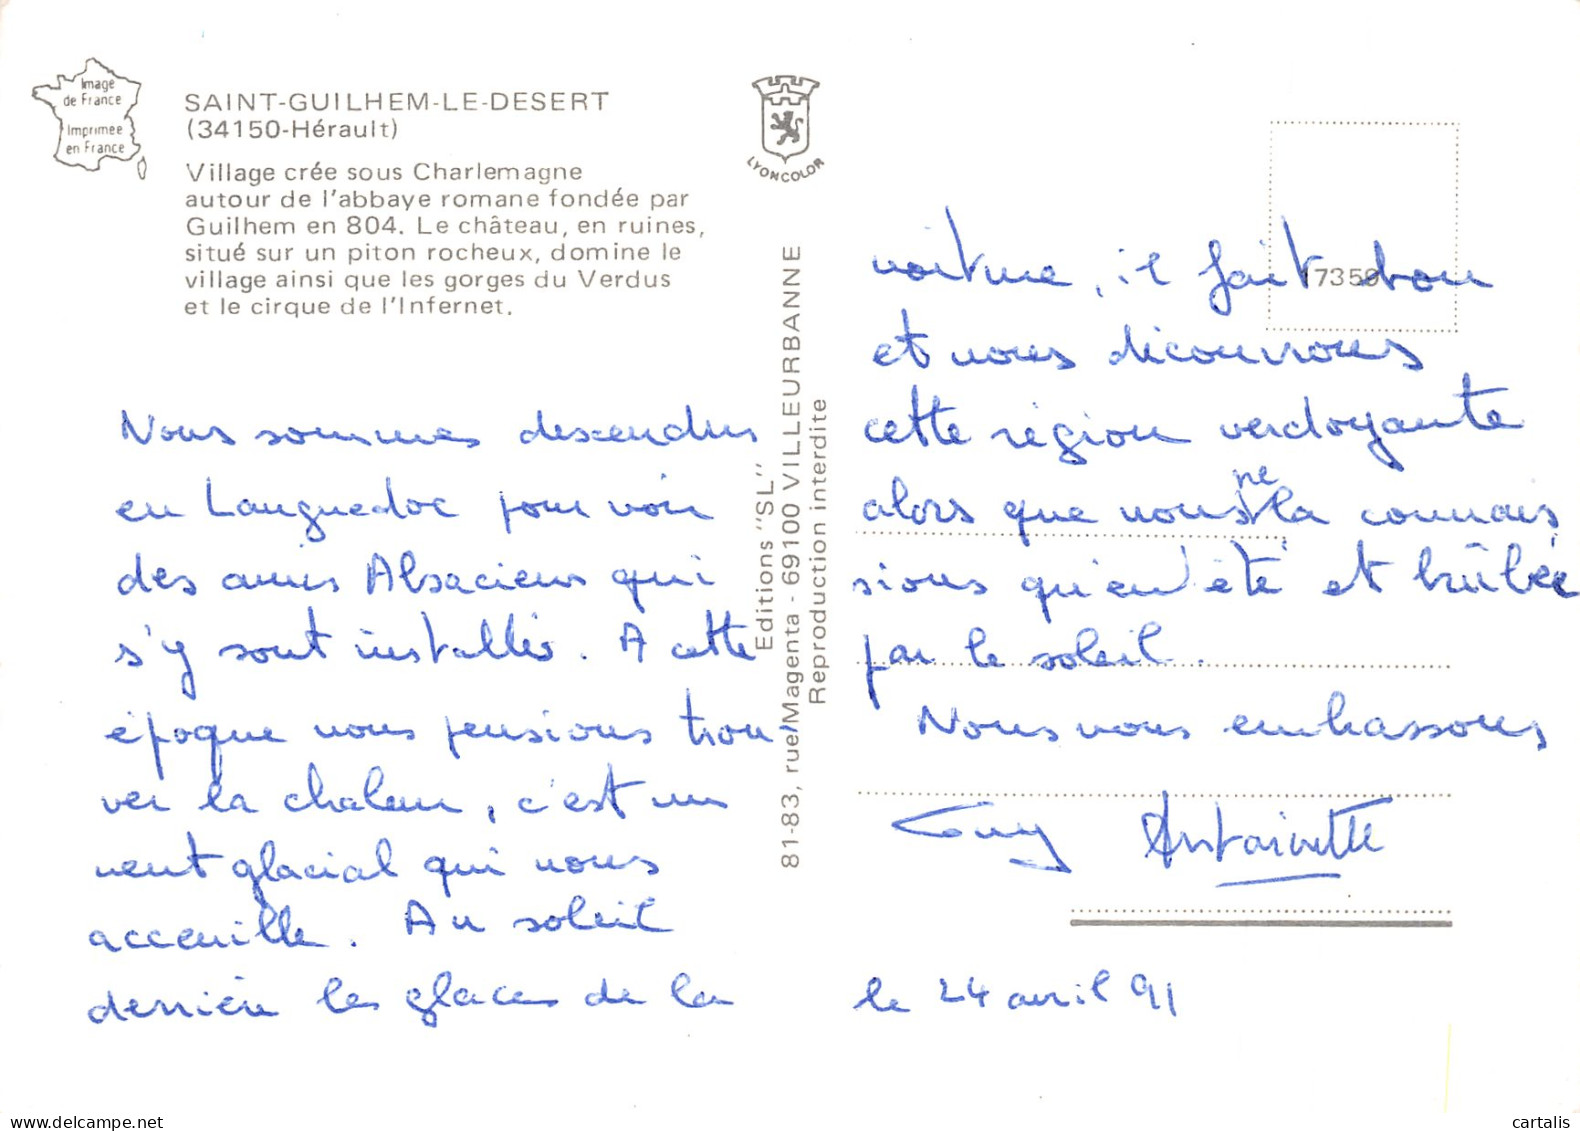 Image
de France
Imprimee
en France
SAINT-GUILHEM-LE-DESERT
(34150-Hérault)
Village crée sous Charlemagne
autour de l'abbaye romane fondée par
Guilhem en 804. Le château, en ruines,
situé sur un piton rocheux, domine le
village ainsi que les gorges du Verdus
et le cirque de l'Infernet.
LYONCOLOR
Nous sommes descendus
en Languedoc pour voir
des amis Alsaciens qui
s'y sont installés. A cette
époque nous pensions trou-
ver la chaleur, c'est un
vent glacial qui nous
acceuille. Au soleil
derrière les glaces de la
Editions "SL"
81-83, rue Magenta - 69100 VILLEURBANNE
Reproduction interdite
voiture, il fait bon
et nous découvrons
cette région verdoyante
alors que nous ne la connais
sions qu'en été et brûlée
par le soleil.
Nous vous embrassons
Guy Antoinette
le 24 avril 91
cartalis